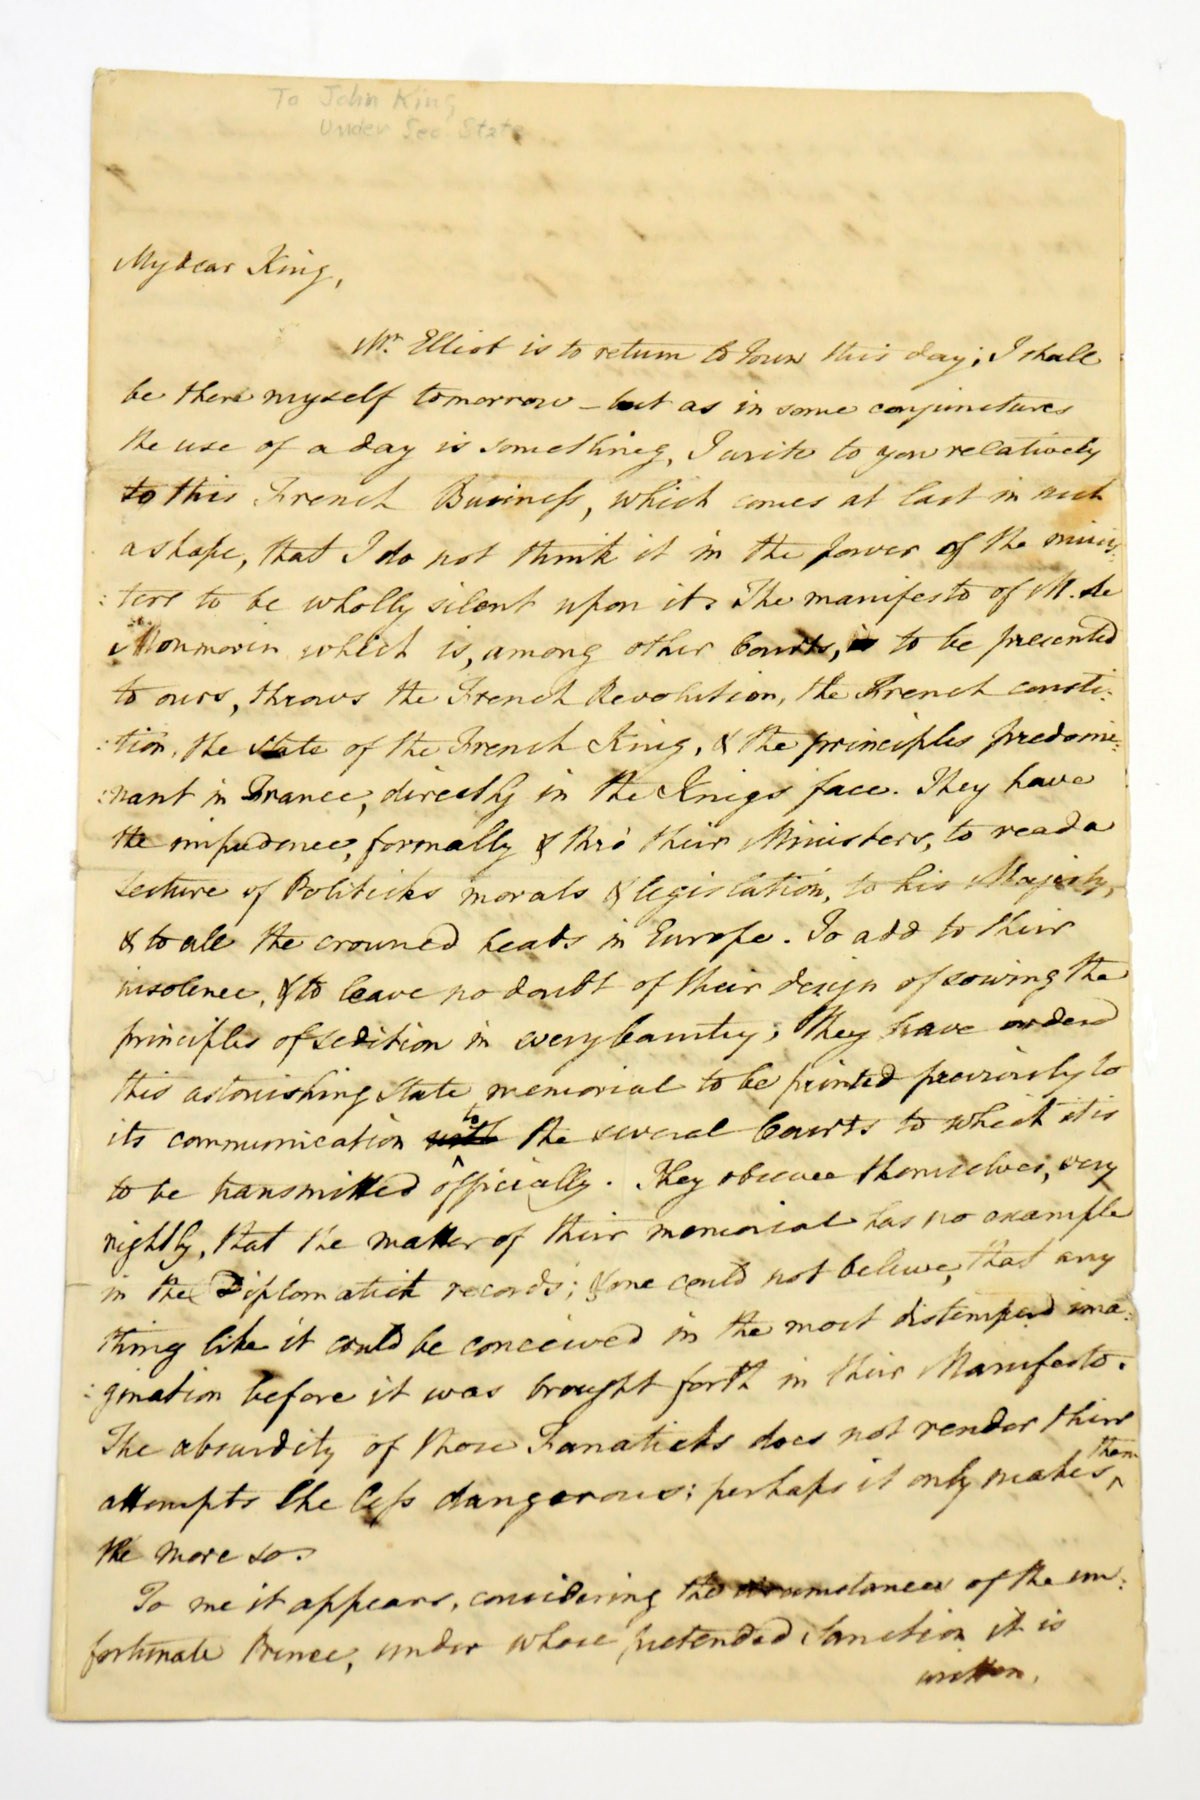 To John King
Under Sec State
My dear King,
Mr. Elliot is to return to Town this day; I shall
be there myself tomorrow – but as in some conjunctures
the use of a day is something, I write to you relatively
to this French Business, which comes at last in such
a shape, that I do not think it in the power of the minis:
:ters to be wholly silent upon it. The manifesto of M. de
Monmorin which is, among other Courts, to be presented
to ours, throws the French Revolution, the French consti:
:tion, the State of the French King, & the principles predomi:
:nant in France, directly in the Kings face. They have
the impudence, formally & thro' their Ministers, to read a
Lecture of Politicks morals & legislation, to his Majesty,
& to all the crowned heads in Europe. To add to their
insolence, & to leave no doubt of their design of sowing the
principles of sedition in every Country; they have orderd
this astonishing State memorial to be printed previously to
its communication with to the several Courts to which it is
to be transmitted officially. They observe themselves, very
rightly, that the matter of their memorial has no example
in the Diplomatick records; & one could not believe, that any
thing like it could be conceived in the most distemperd ima:
:gination before it was brought forth in their Manifesto.
The absurdity of those Fanaticks does not render their
attempts the less dangerous; perhaps it only makes them
the more so.
To me it appears, considering the circumstances of the un:
fortunate Prince, under whose pretended Sanction it is
written,